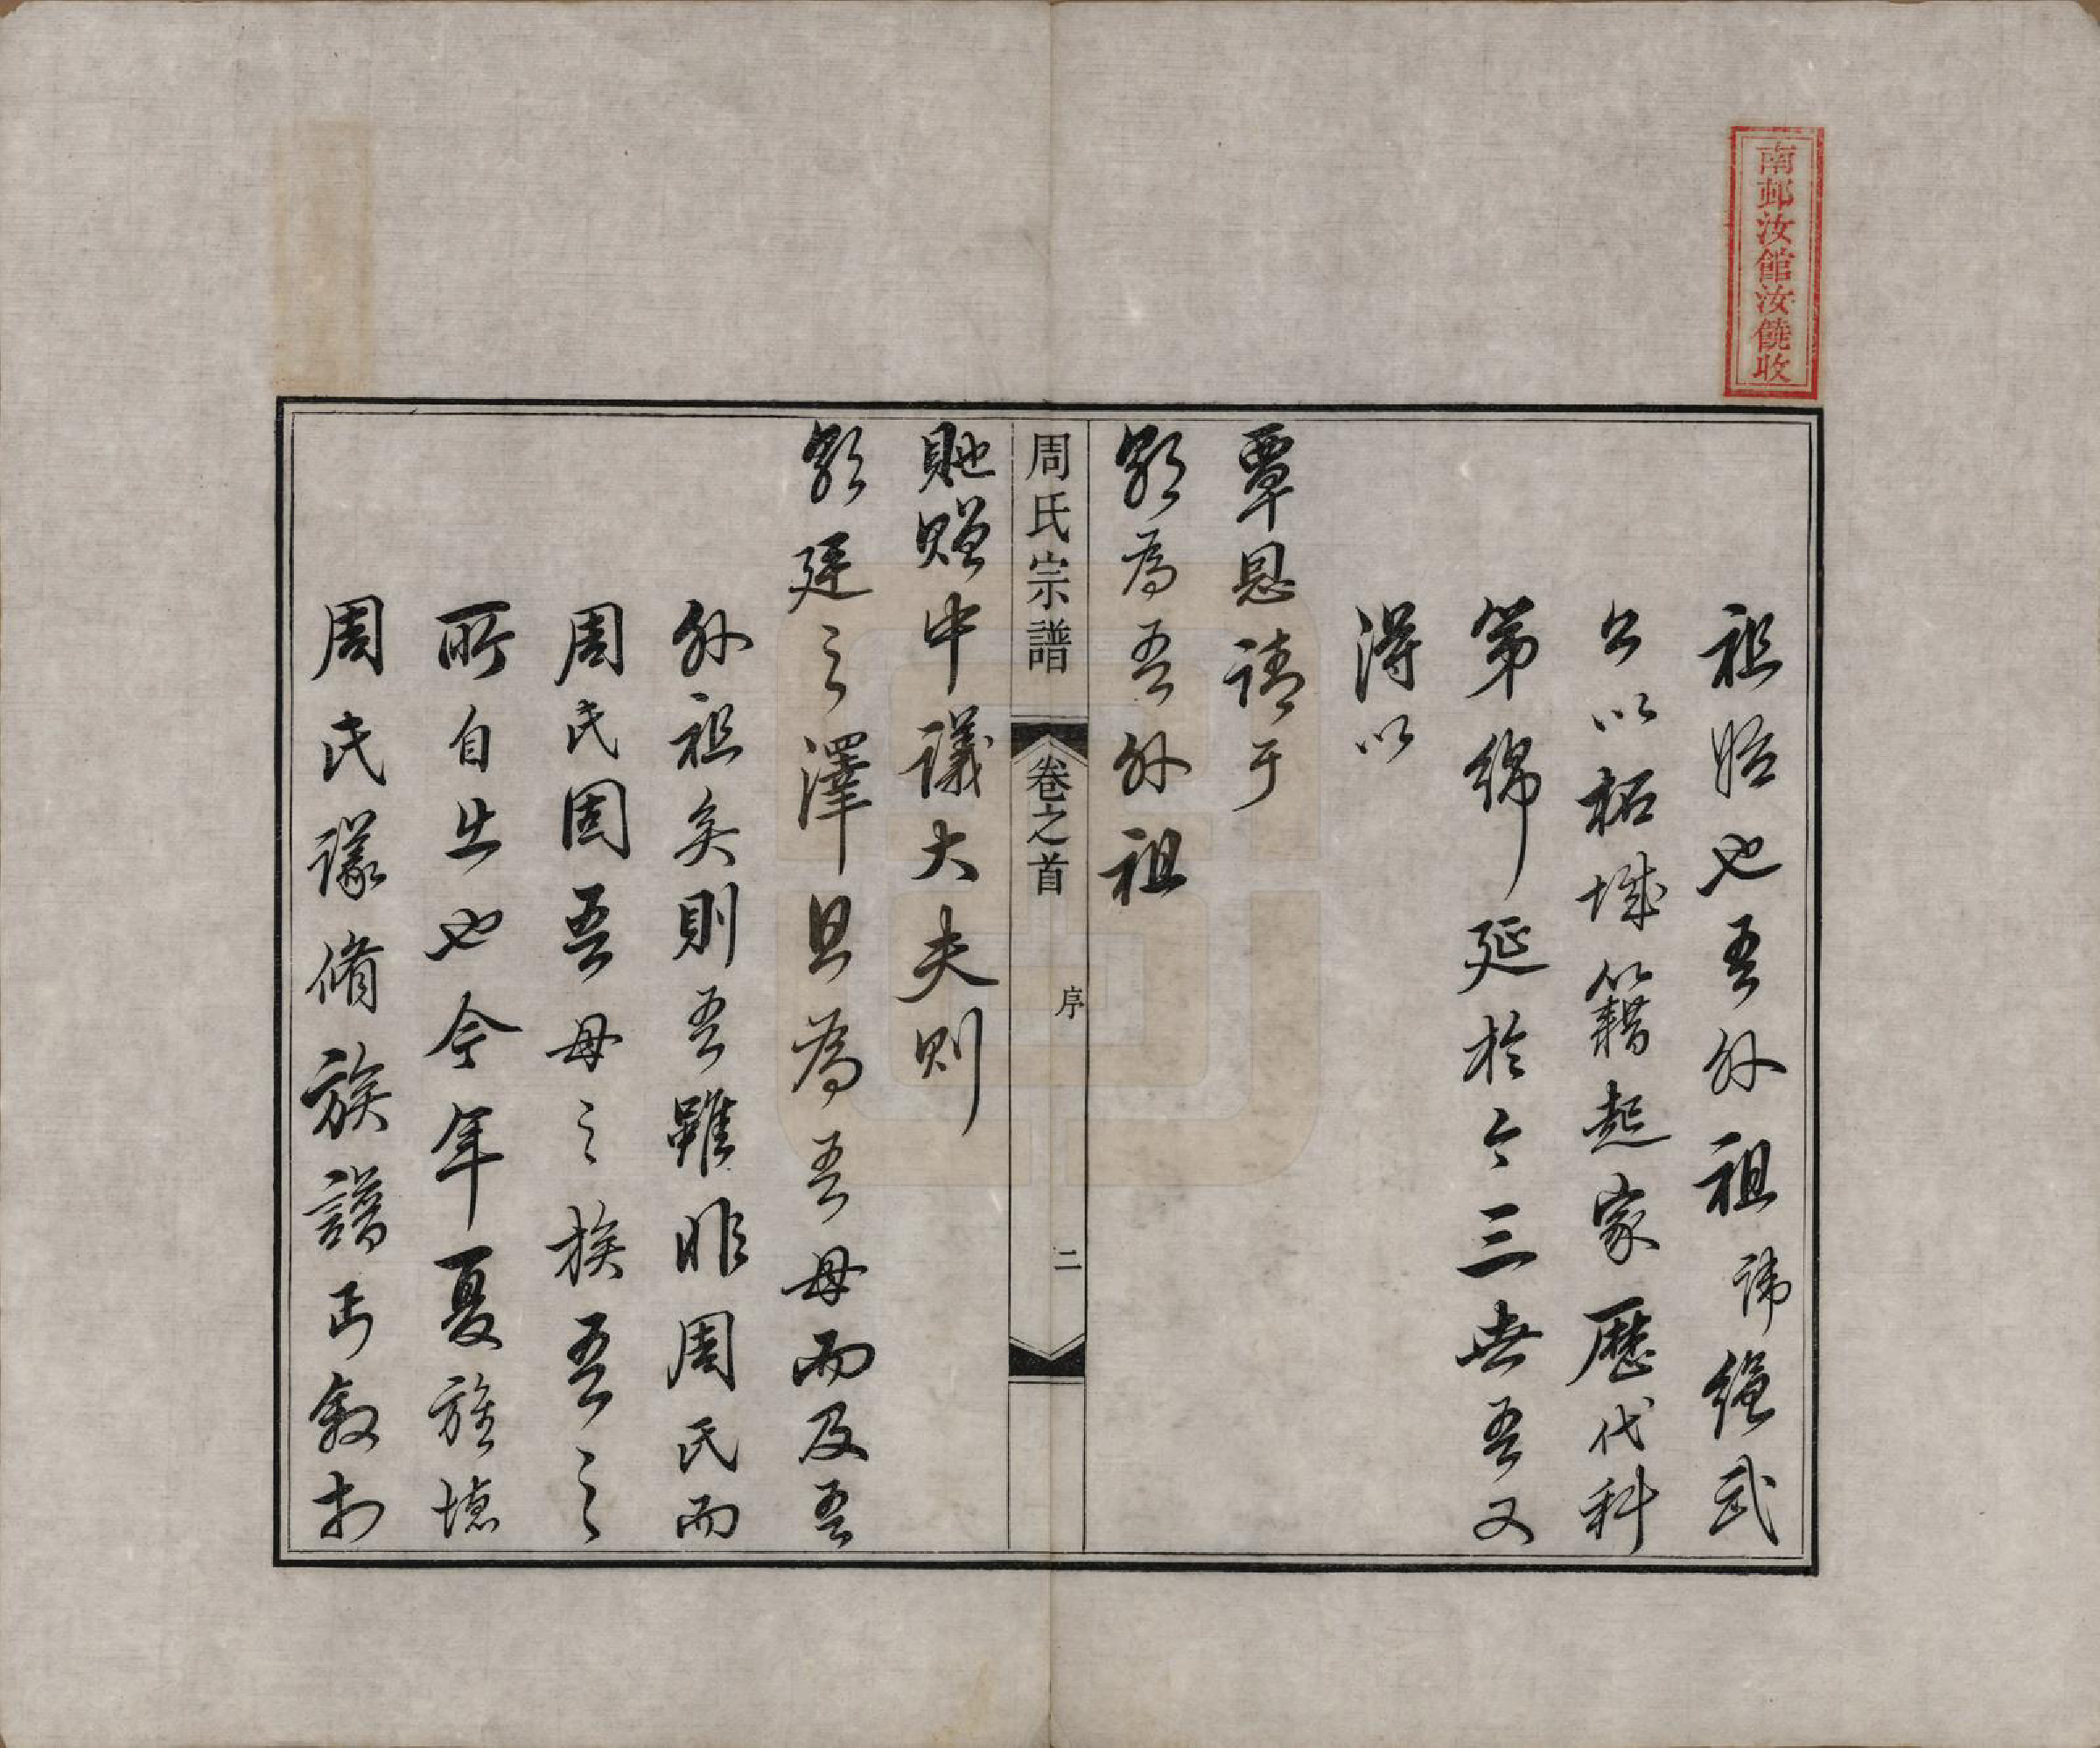 南邨汝館汝僥收
祖始也吾外祖諱繩武
公以柘城籍起家歷代科
第綿延於今三世吾又
得以
覃恩請于
朝為吾外祖
周氏宗譜
卷之首
序
二
貤贈中議大夫則
朝廷之澤且為吾母而及吾
外祖矣則吾雖非周氏而
周氏固吾母之族吾之
所自出也今年夏旋
周氏議脩族譜丐敘於